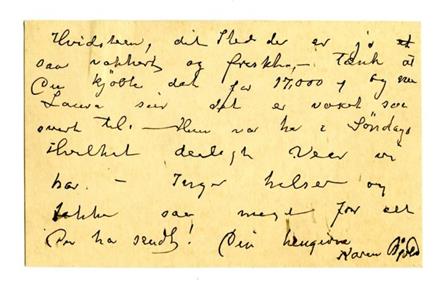 Hvidsteen, dit Sted der er jo et
saa vakkert og friskt, – tænk at
Du kjøbte det for 17,000 og nu
Laura sier det er vokset saa
svært til. – Hun var her i Søndags
Hvilket deiligt Veer vi
har. – Inger hilser og
takker saa meget for alt
Du har sendt! Din hengivne
Karen